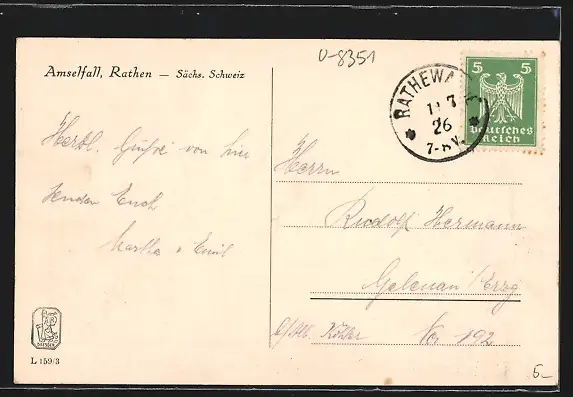 Amselfall, Rathen — Sächs. Schweiz
U-8351
RATHEWA
11 7
26
7-8V.
5 5
Deutsches
Reich
Herzl. Grüße von hier
senden Euch
Martha u Emil
Herrn
Rudolf Hermann
Gelenau/Erzg
b/Alb. Köhler No 192
L 159/3
6.-